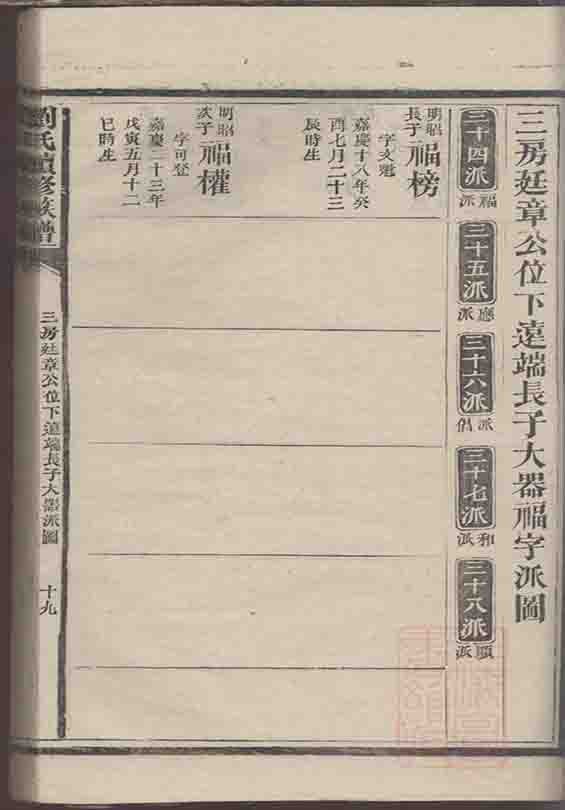 三房廷章公位下遠端長子大器福字派圖
三十四派
福派
三十五派
應派
三十六派
侶派
三十七派
和派
三十八派
順派
明昭長子福榜
字文魁
嘉慶十八年癸
酉七月二十三
辰時生
明昭次子福權
字可登
嘉慶二十三年
戊寅五月十二
巳時生
劉氏續修族譜
三房廷章公位下遠端長子大器派圖
十九